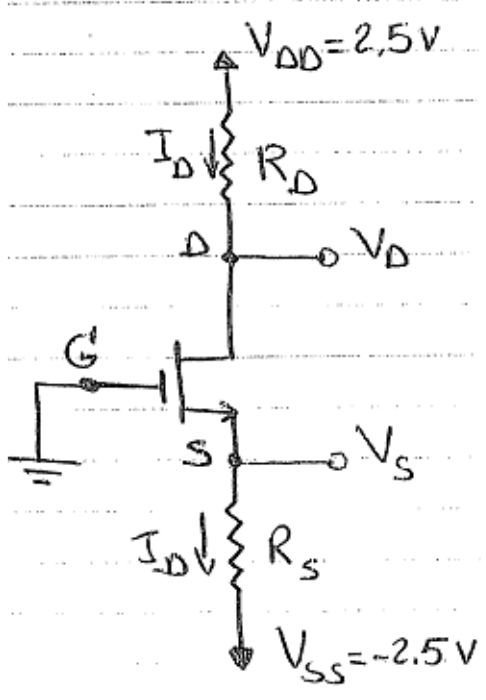 V_DD = 2,5 V
I_D R_D
D V_D
G
S V_S
I_D R_S
V_SS = -2.5 V